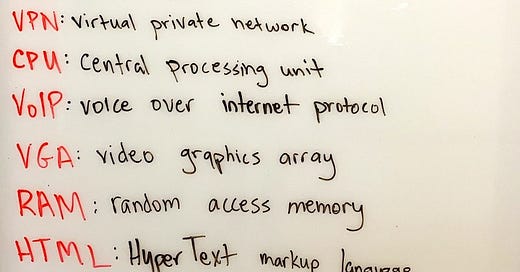 VPN: virtual private network
CPU: Central processing unit
VoIP: voice over internet protocol
VGA: video graphics array
RAM: random access memory
HTML: HyperText markup language